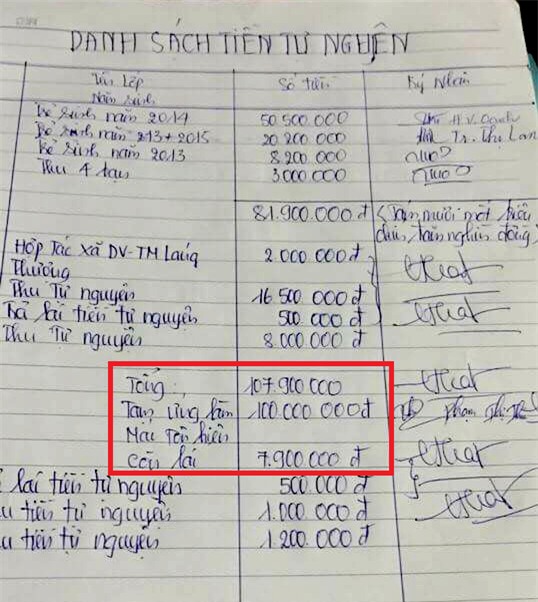 DANH SÁCH TIỀN TỰ NGHỆN
Tên Lớp Số tiền Ký Nhận
Năm sinh
Bé sinh năm 2014 50 500.000
Bé sinh năm 213+2015 20 200 000 Tr. Thị Lan
Bé sinh năm 2013 8 200 000
Thu 4 bạn 3000 000
81.900.000đ (Tám mươi một triệu
chín trăm nghìn đồng)
Hợp Tác Xã DV-TM Láng 2.000 000đ
Thượng
Thu Tự nguyện 16 500 000đ
Trả lãi tiền tự nguyện 500 000đ
Thu Tự nguyện 8.000 000đ
Tổng 107.900 000
Tạm ứng làm 100.000 000đ Phạm
Mái Tôn hiên
Còn lại 7.900.000 đ
lãi tiền tự nguyện 500.000 đ
tiền tự nguyện 1.000 000 đ
tiền tự nguyện 1.200 000đ